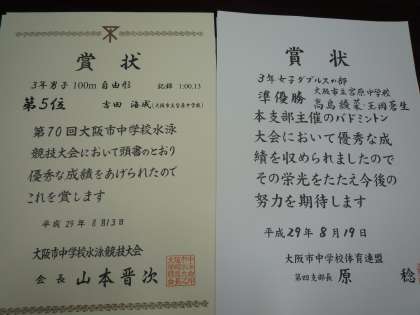 賞状
3年男子 100m 自由形 記録 1:00.13
第5位 吉田 海成(大阪市立宮原中学校)
第70回大阪市中学校水泳
競技大会において頭書のとおり
優秀な成績をあげられたので
これを賞します
平成 29年 8月13日
大阪市中学校水泳競技大会
会長 山本晋次
賞状
3年女子ダブルスの部
大阪市立宮原中学校
準優勝 高島 綾菜・王岡蒼生
本支部主催のバドミントン
大会において優秀な成
績を収められましたので
その栄光をたたえ今後の
努力を期待します
平成29年8月19日
大阪市中学校体育連盟
第四支部長 原 稔